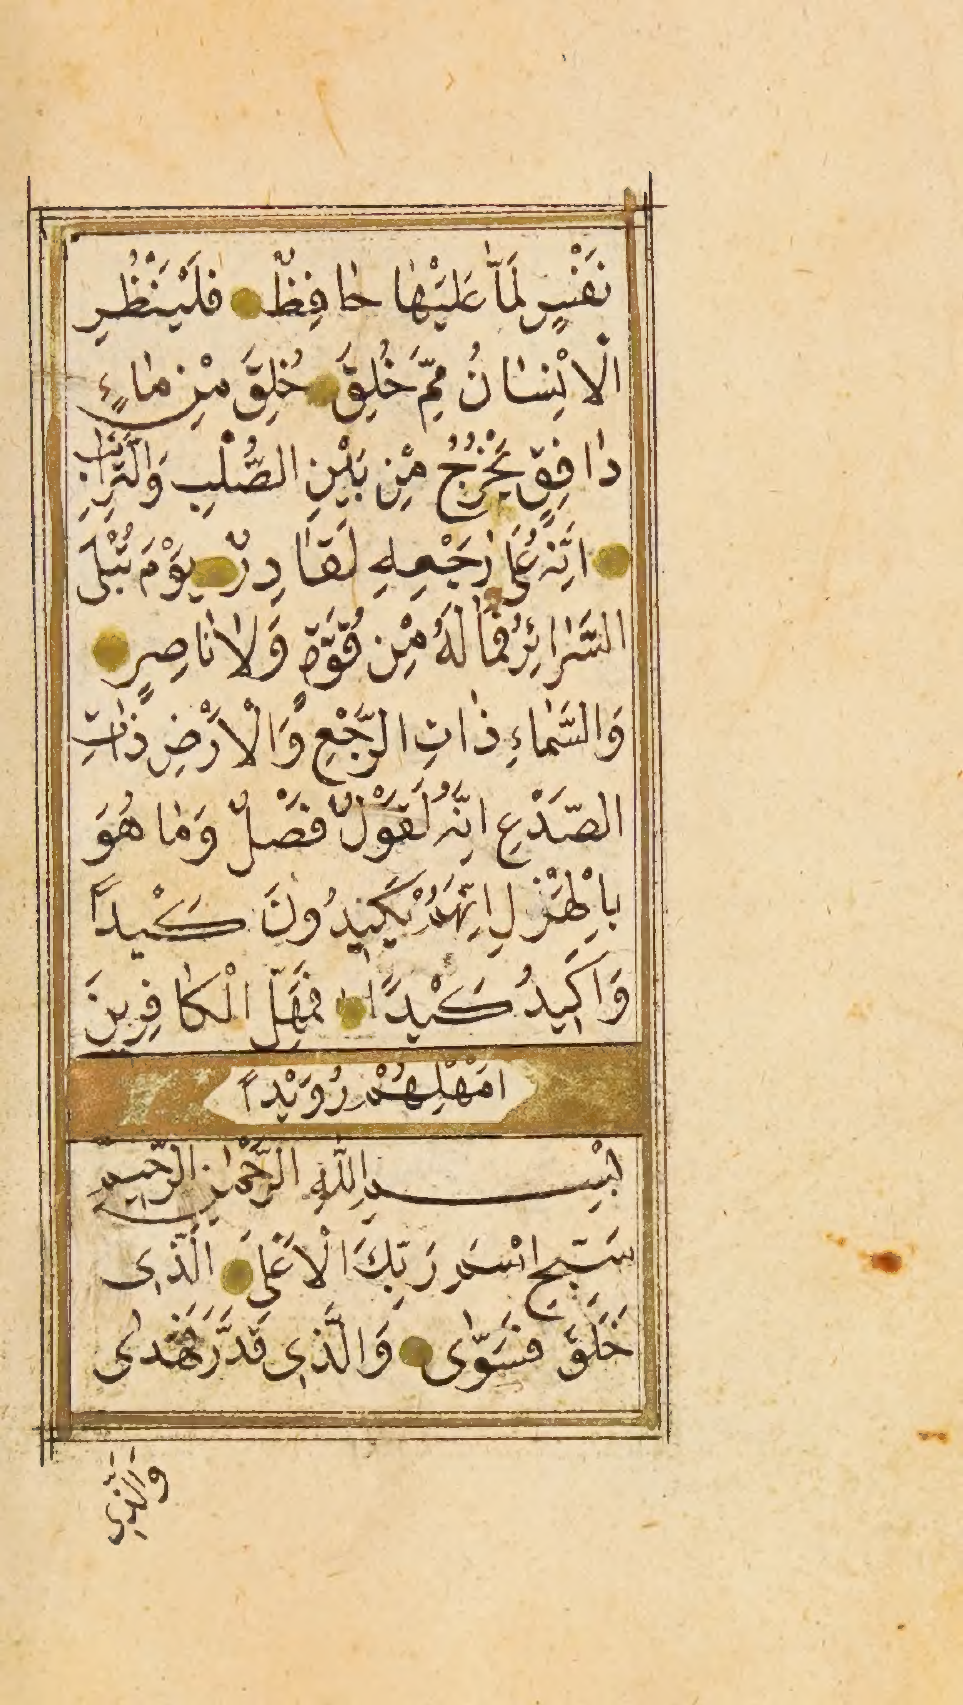 نَفْسٍ لَمَّا عَلَيْهَا حَافِظٌ فَلْيَنْظُرِ
الْاِنْسَانُ مِمَّ خُلِقَ خُلِقَ مِنْ مَاءٍ
دَافِقٍ يَخْرُجُ مِنْ بَيْنِ الصُّلْبِ وَالتَّرَائِبِ
اِنَّهُ عَلَى رَجْعِهِ لَقَادِرٌ يَوْمَ تُبْلَى
السَّرَائِرُ فَمَا لَهُ مِنْ قُوَّةٍ وَلَا نَاصِرٍ
وَالسَّمَاءِ ذَاتِ الرَّجْعِ وَالْاَرْضِ ذَاتِ
الصَّدْعِ اِنَّهُ لَقَوْلٌ فَصْلٌ وَمَا هُوَ
بِالْهَزْلِ اِنَّهُمْ يَكِيدُونَ كَيْدًا
وَاَكِيدُ كَيْدًا فَمَهِّلِ الْكَافِرِينَ
اَمْهِلْهُمْ رُوَيْدًا
بِسْمِ اللّٰهِ الرَّحْمٰنِ الرَّحِيمِ
سَبِّحِ اسْمَ رَبِّكَ الْاَعْلَى الَّذِي
خَلَقَ فَسَوّٰى وَالَّذِي قَدَّرَ فَهَدٰى
وَالَّذِي